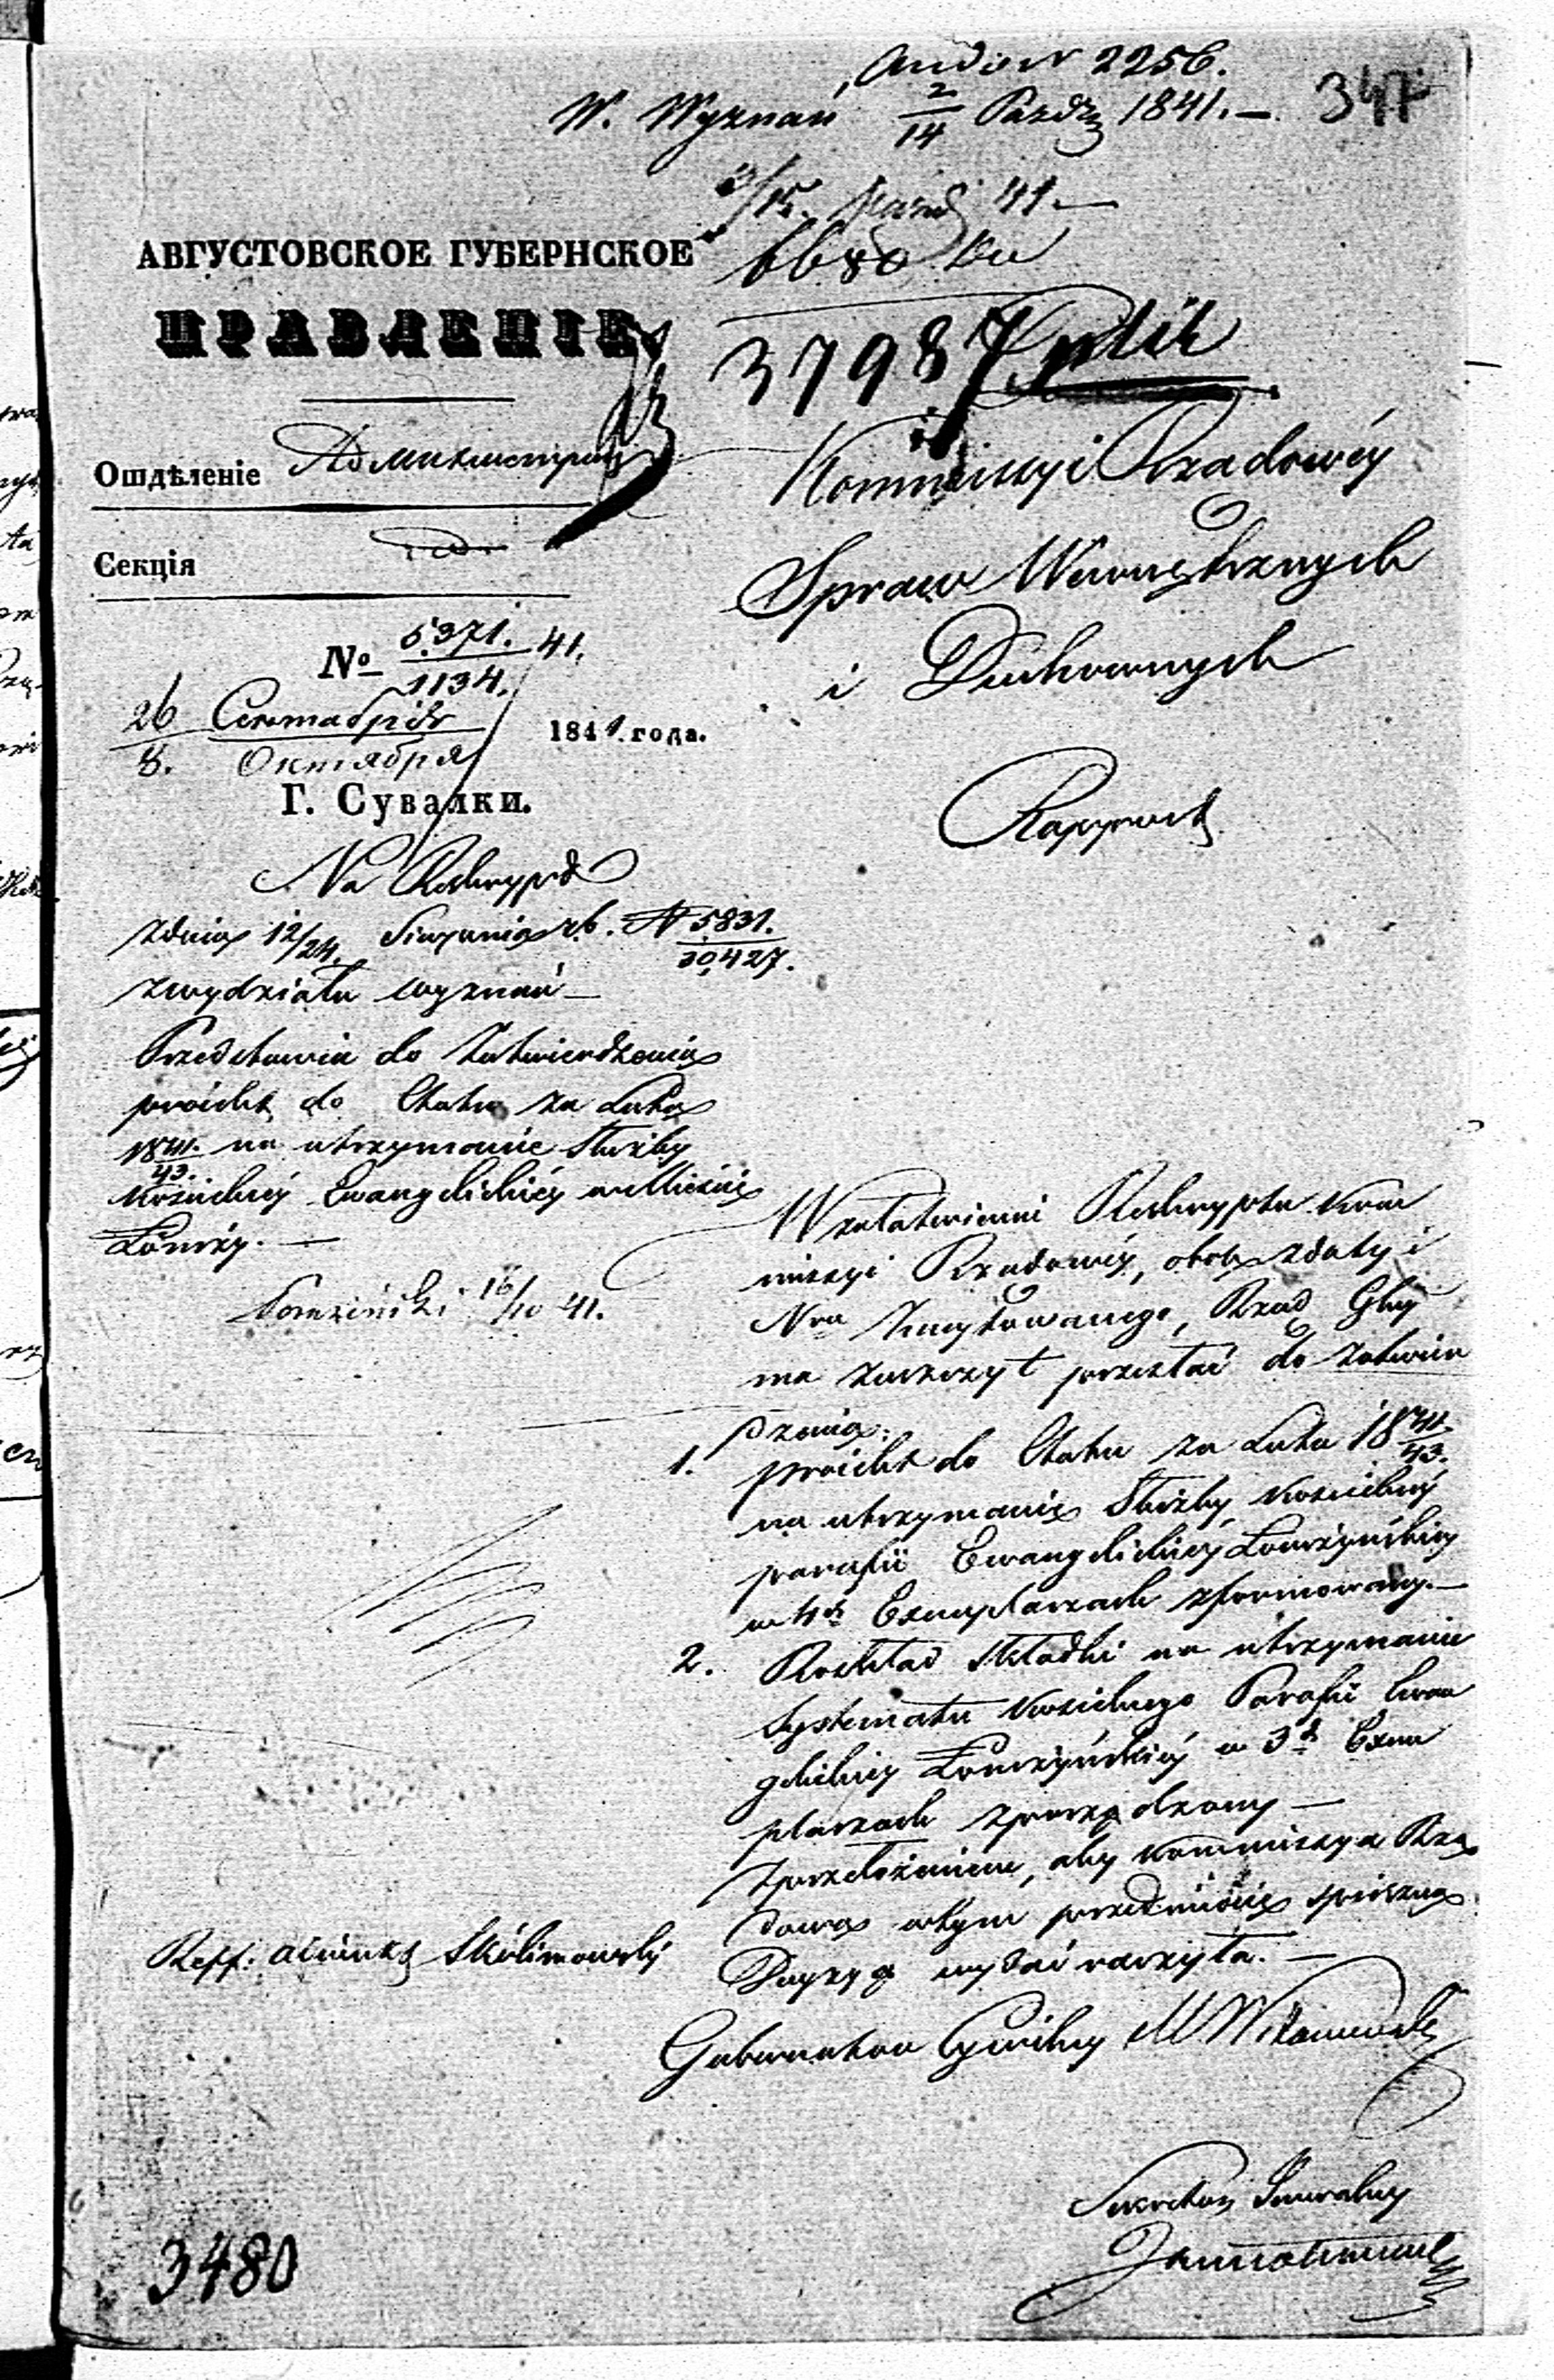 2256.
W. Wyznań 2/14 Paźdz 1841. –
347
/15. Paźd 41. –
6680
37987
АВГУСТОВСКОЕ ГУБЕРНСКОЕ
ПРАВЛЕНІЕ
Отдѣленіе
Секція
№ 5371./1134. 41.
26 Сентября
8. Октября
1841. года.
Г. Сувалки.
Kommissyi Rządowéy
Spraw Wewnętrznych
i Duchownych
Rapport
Na Reskrypt
z dnia 12/24. Sierpnia r. b. N 5831./30,427.
z wydziału wyznań –
Przedstawia do Zatwierdzenia
proiekt do Etatu za Lata
1841./43. na utrzymanie Służby
Kościelnéy Ewangelickiéy w Mieście
Łomży. –
16/10 41.
W załatwieniu Reskryptu Kom
missyi Rządowéy, obok z daty i
Nru zacytowanego, Rząd Gbny
ma zaszczyt przesłać do zatwier
dzenia:
1. proiekt do Etatu za Lata 1841./43.
na utrzymanie Służby Kościelnéy
parafii Ewangelickiéy Łomżyńskiéy
w 4ch Exemplarzach zformowany. –
2. Rozkład Składki na utrzymanie
Systematu Kościelnego Parafii Ewan
gelickiéy Łomżyńskiéy w 3ch Exem
plarzach sporządzony –
z przełożeniem, aby Kommissya Rzą
dowa w tym przedmiocie spieszną
Decyzyą wydać raczyła. –
Reff: Skólimowski
Gubernator Cywilny
Sekretarz Jeneralny
3480